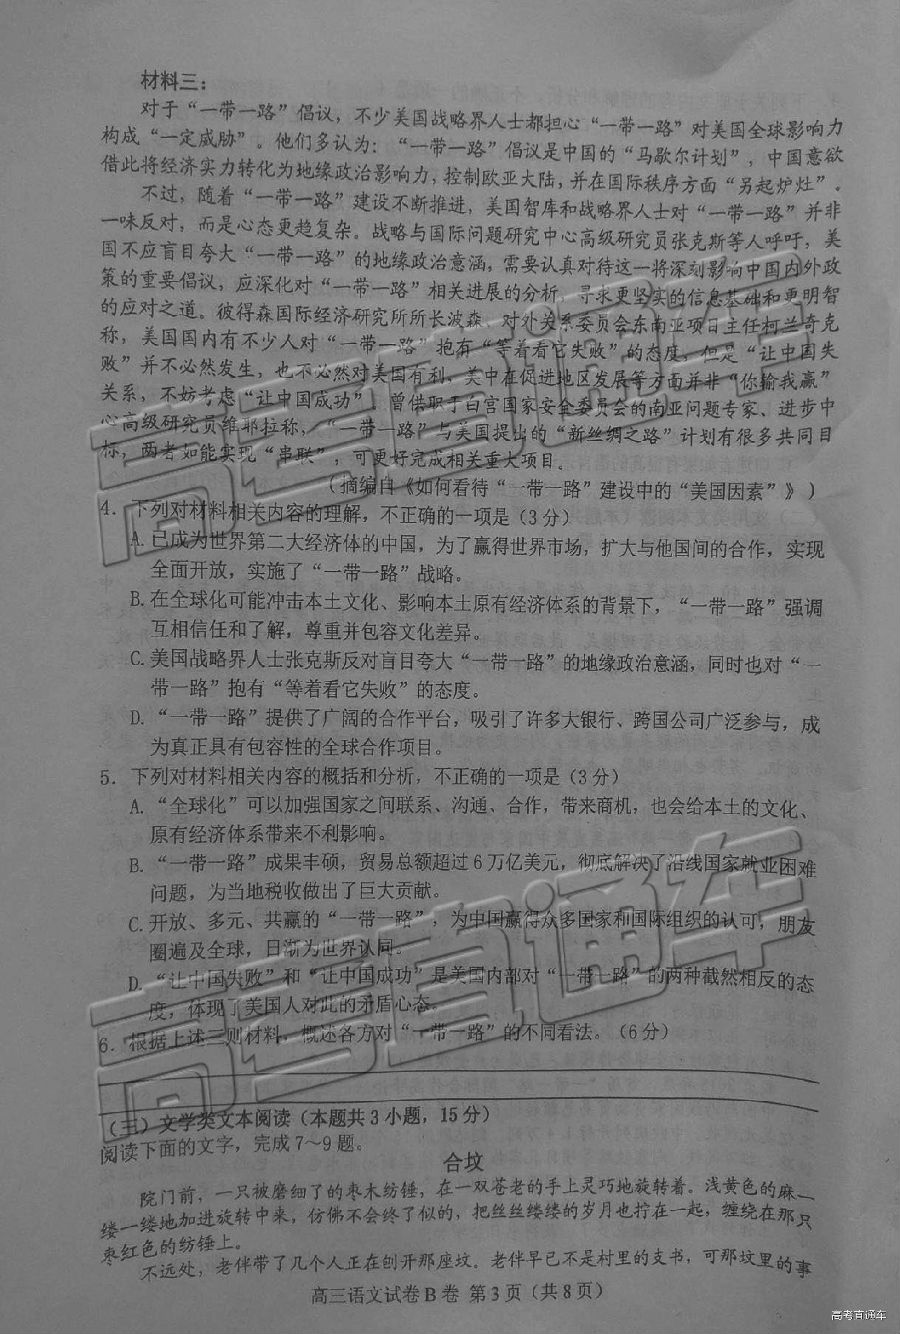 材料三：
对于“一带一路”倡议，不少美国战略界人士都担心“一带一路”对美国全球影响力
构成“一定威胁”。他们多认为：“一带一路”倡议是中国的“马歇尔计划”，中国意欲
借此将经济实力转化为地缘政治影响力，控制欧亚大陆，并在国际秩序方面“另起炉灶”。
不过，随着“一带一路”建设不断推进，美国智库和战略界人士对“一带一路”并非
一味反对，而是心态更趋复杂。战略与国际问题研究中心高级研究员张克斯等人呼吁，美
国不应盲目夸大“一带一路”的地缘政治意涵，需要认真对待这一将深刻影响中国内外政
策的重要倡议，应深化对“一带一路”相关进展的分析，寻求更坚实的信息基础和更明智
的应对之道。彼得森国际经济研究所所长波森、对外关系委员会东南亚项目主任柯兰奇克
称，美国国内有不少人对“一带一路”抱有“等着看它失败”的态度，但是“让中国失
败”并不必然发生，也不必然对美国有利，美中在促进地区发展等方面并非“你输我赢”
关系，不妨考虑“让中国成功”。曾供职于白宫国家安全委员会的南亚问题专家、进步中
心高级研究员维耶拉称，“一带一路”与美国提出的“新丝绸之路”计划有很多共同目
标，两者如能实现“串联”，可更好完成相关重大项目。
（摘编自《如何看待“一带一路”建设中的“美国因素”》）
4．下列对材料相关内容的理解，不正确的一项是（3分）
A. 已成为世界第二大经济体的中国，为了赢得世界市场，扩大与他国间的合作，实现
全面开放，实施了“一带一路”战略。
B. 在全球化可能冲击本土文化、影响本土原有经济体系的背景下，“一带一路”强调
互相信任和了解，尊重并包容文化差异。
C. 美国战略界人士张克斯反对盲目夸大“一带一路”的地缘政治意涵，同时也对“一
带一路”抱有“等着看它失败”的态度。
D. “一带一路”提供了广阔的合作平台，吸引了许多大银行、跨国公司广泛参与，成
为真正具有包容性的全球合作项目。
5．下列对材料相关内容的概括和分析，不正确的一项是（3分）
A. “全球化”可以加强国家之间联系、沟通、合作，带来商机，也会给本土的文化、
原有经济体系带来不利影响。
B. “一带一路”成果丰硕，贸易总额超过6万亿美元，彻底解决了沿线国家就业困难
问题，为当地税收做出了巨大贡献。
C. 开放、多元、共赢的“一带一路”，为中国赢得众多国家和国际组织的认可，朋友
圈遍及全球，日渐为世界认同。
D. “让中国失败”和“让中国成功”是美国内部对“一带一路”的两种截然相反的态
度，体现了美国人对此的矛盾心态。
6．根据上述三则材料，概述各方对“一带一路”的不同看法。（6分）
（三）文学类文本阅读（本题共3小题，15分）
阅读下面的文字，完成7～9题。
合坟
院门前，一只被磨细了的枣木纺锤，在一双苍老的手上灵巧地旋转着。浅黄色的麻一
缕一缕地加进旋转中来，仿佛不会终了似的，把丝丝缕缕的岁月也拧在一起，缠绕在那只
枣红色的纺锤上。
不远处，老伴带了几个人正在刨开那座坟。老伴早已不是村里的支书，可那坟里的事
高三语文试卷B卷 第3页（共8页）
高考直通车
高考直通车
高考直通车